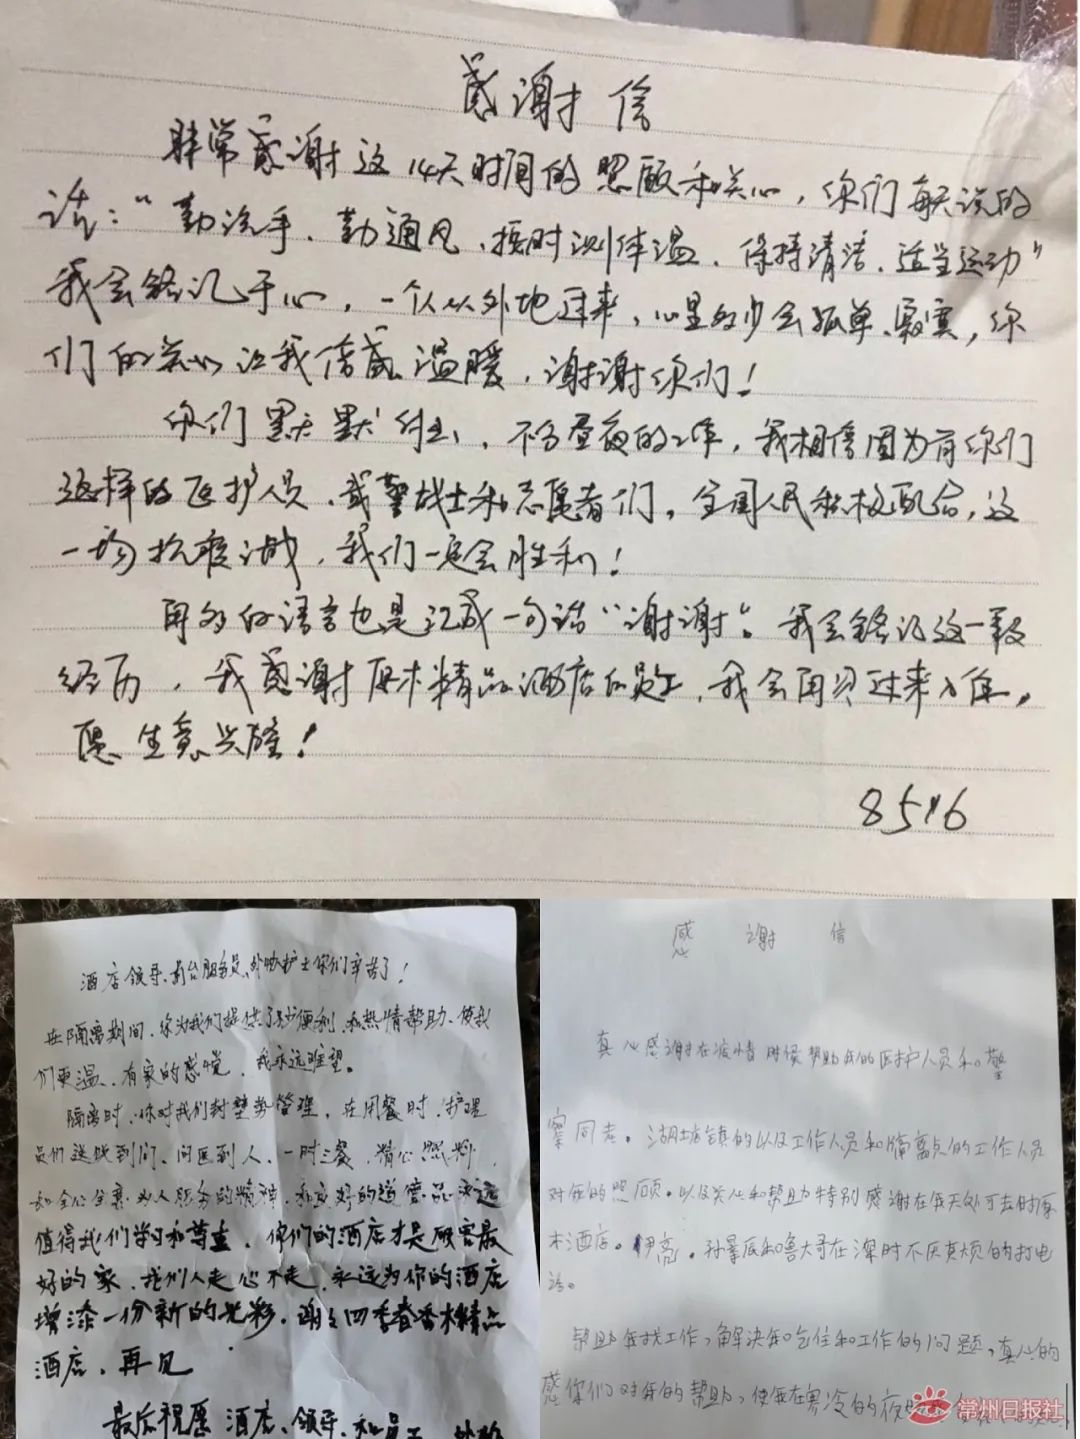 感谢信
非常感谢这14天时间的照顾和关心，你们每天说的
话：“勤洗手、勤通风、按时测体温、保持清洁、适当运动”
我会铭记于心，一个人从外地过来，心里多少会孤单、寂寞，你
们的关心让我倍感温暖，谢谢你们！
你们默默付出、不分昼夜的工作，我相信因为有你们
这样的医护人员、武警战士和志愿者们，全国人民积极配合，这
一场抗疫战，我们一定会胜利！
再多的语言也是汇成一句话“谢谢”。我会铭记这一段
经历，我感谢原木精品酒店的员工，我会再次过来入住，
愿生意兴隆！
8516
酒店领导、前台服务员、外协护士你们辛苦了！
在隔离期间、你为我们提供了便利、和热情帮助、使我
们更温、有家的感觉、我永远难望。
隔离时、你对我们封堂势管理、在用餐时、护理
员们送饭到门、问医到人、一时三餐、精心照料、
和全心全意为人服务的精神、和良好的道德品永远
值得我们学习和尊重、你们的酒店才是顾客最
好的家、我们人走心不走、永远为你的酒店
增添一份新的光彩、谢谢四季春香木精品
酒店、再见
最后祝愿酒店、领导、和员工
感谢信
真心感谢在疫情时候帮助我的医护人员和警
察同志。湖塘镇的以及工作人员和隔离点的工作人员
对我的照顾。以及关心和帮助特别感谢在我无处可去时原
木酒店。伊亮，孙景辰和鲁大哥在深时不厌其烦的打电
话。
帮助我找工作，解决我吃住和工作的问题，真心的
感你们对我的帮助，使我在寒冷的夜晚
常州日报社